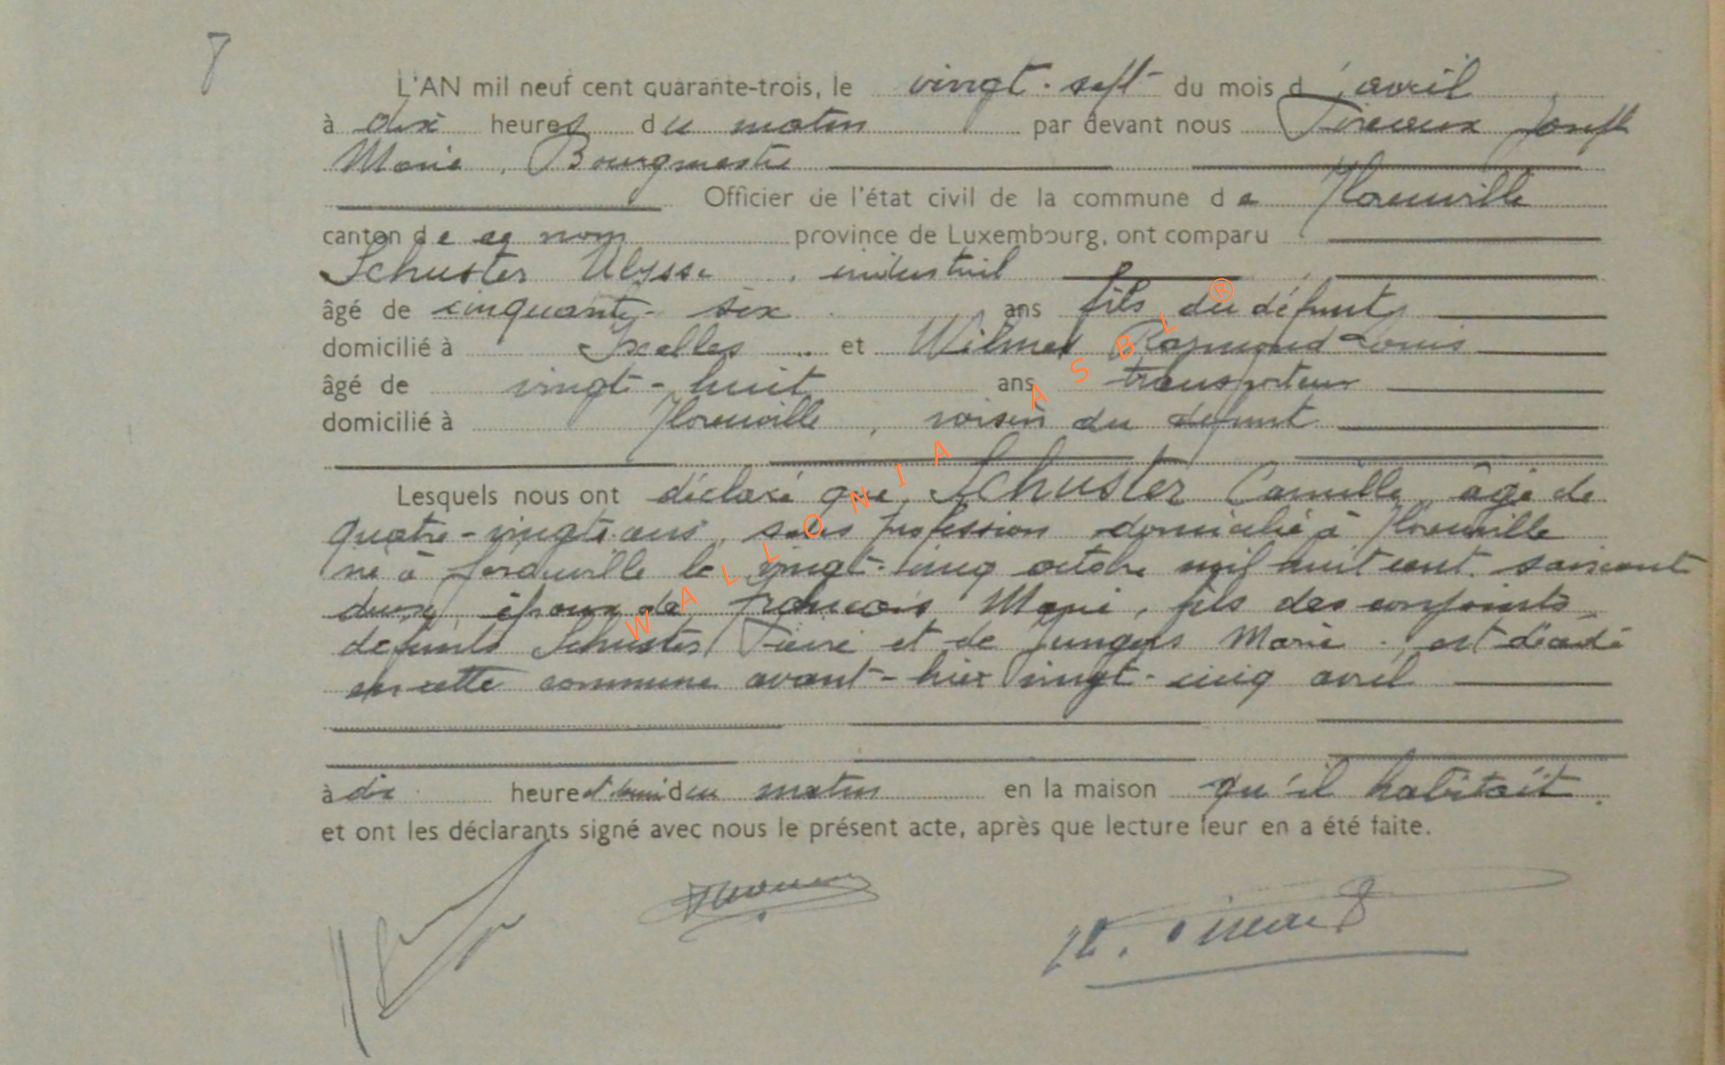 8
L'AN mil neuf cent quarante-trois, le vingt-sept du mois d'avril
à dix heures du matin par devant nous Joseph
Marie, Bourgmestre
Officier de l'état civil de la commune de Florenville
canton de ce nom province de Luxembourg, ont comparu
Schuster Ulysse, industriel
âgé de cinquante-six ans fils du défunt
domicilié à Ixelles et Wilmet Raymond Louis
âgé de vingt-huit ans transporteur
domicilié à Florenville, voisin du défunt
Lesquels nous ont déclaré que Schuster Camille, âgé de
quatre-vingts ans, sans profession domicilié à Florenville
né à le vingt-cinq octobre mil huit cent soixante
deux, époux de François Marie, fils des conjoints
défunts Schuster Pierre et de Jungers Marie, est décédé
en cette commune avant-hier vingt-cinq avril
à dix heures et demi du matin en la maison qu'il habitait.
et ont les déclarants signé avec nous le présent acte, après que lecture leur en a été faite.
WALLONIA ASBL ®